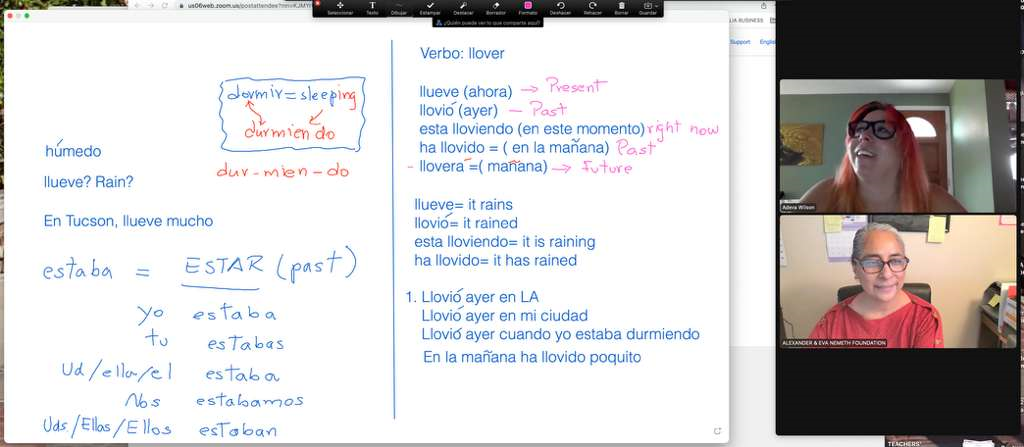 us06web.zoom.us/postattendee?mn=KJMY
Seleccionar
Texto
Dibujar
Estampar
Destacar
Borrador
Formato
Deshacer
Rehacer
Borrar
Guardar
¿Quién puede ver lo que comparte aquí?
Support
dormir = sleeping
durmiendo
dur-mien-do
húmedo
llueve? Rain?
En Tucson, llueve mucho
estaba = ESTAR (past)
yo estaba
tu estabas
Ud/ella/el estaba
Nos estabamos
Uds/Ellas/Ellos estaban
Verbo: llover
llueve (ahora) → Present
llovió (ayer) – Past
esta lloviendo (en este momento) right now
ha llovido = ( en la mañana) Past
- lloverá =( mañana) → future
llueve= it rains
llovió= it rained
esta lloviendo= it is raining
ha llovido= it has rained
1. Llovió ayer en LA
Llovió ayer en mi ciudad
Llovió ayer cuando yo estaba durmiendo
En la mañana ha llovido poquito
Adena Wilson
ALEXANDER & EVA NEMETH FOUNDATION
TEACHERS'